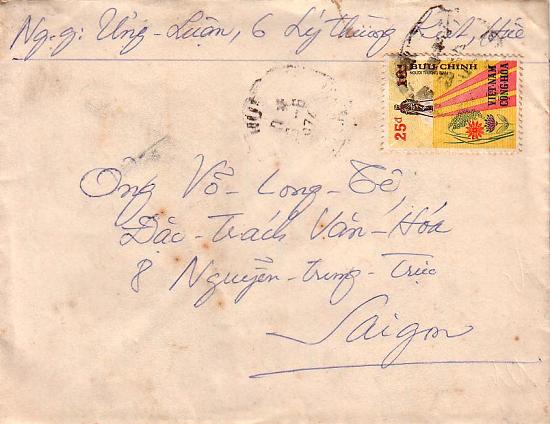 Ng.g: Ưng-Luận, 6 Lý thường Kiệt, Huế
10đ BƯU CHÍNH
NGƯỜI THƯƠNG BINH
25đ
VIỆT-NAM
CỘNG-HÒA
HUẾ
Ông Võ-Long-Tê
Đặc-Trách Văn-Hóa
8 Nguyễn-trung-Trực
Saigon